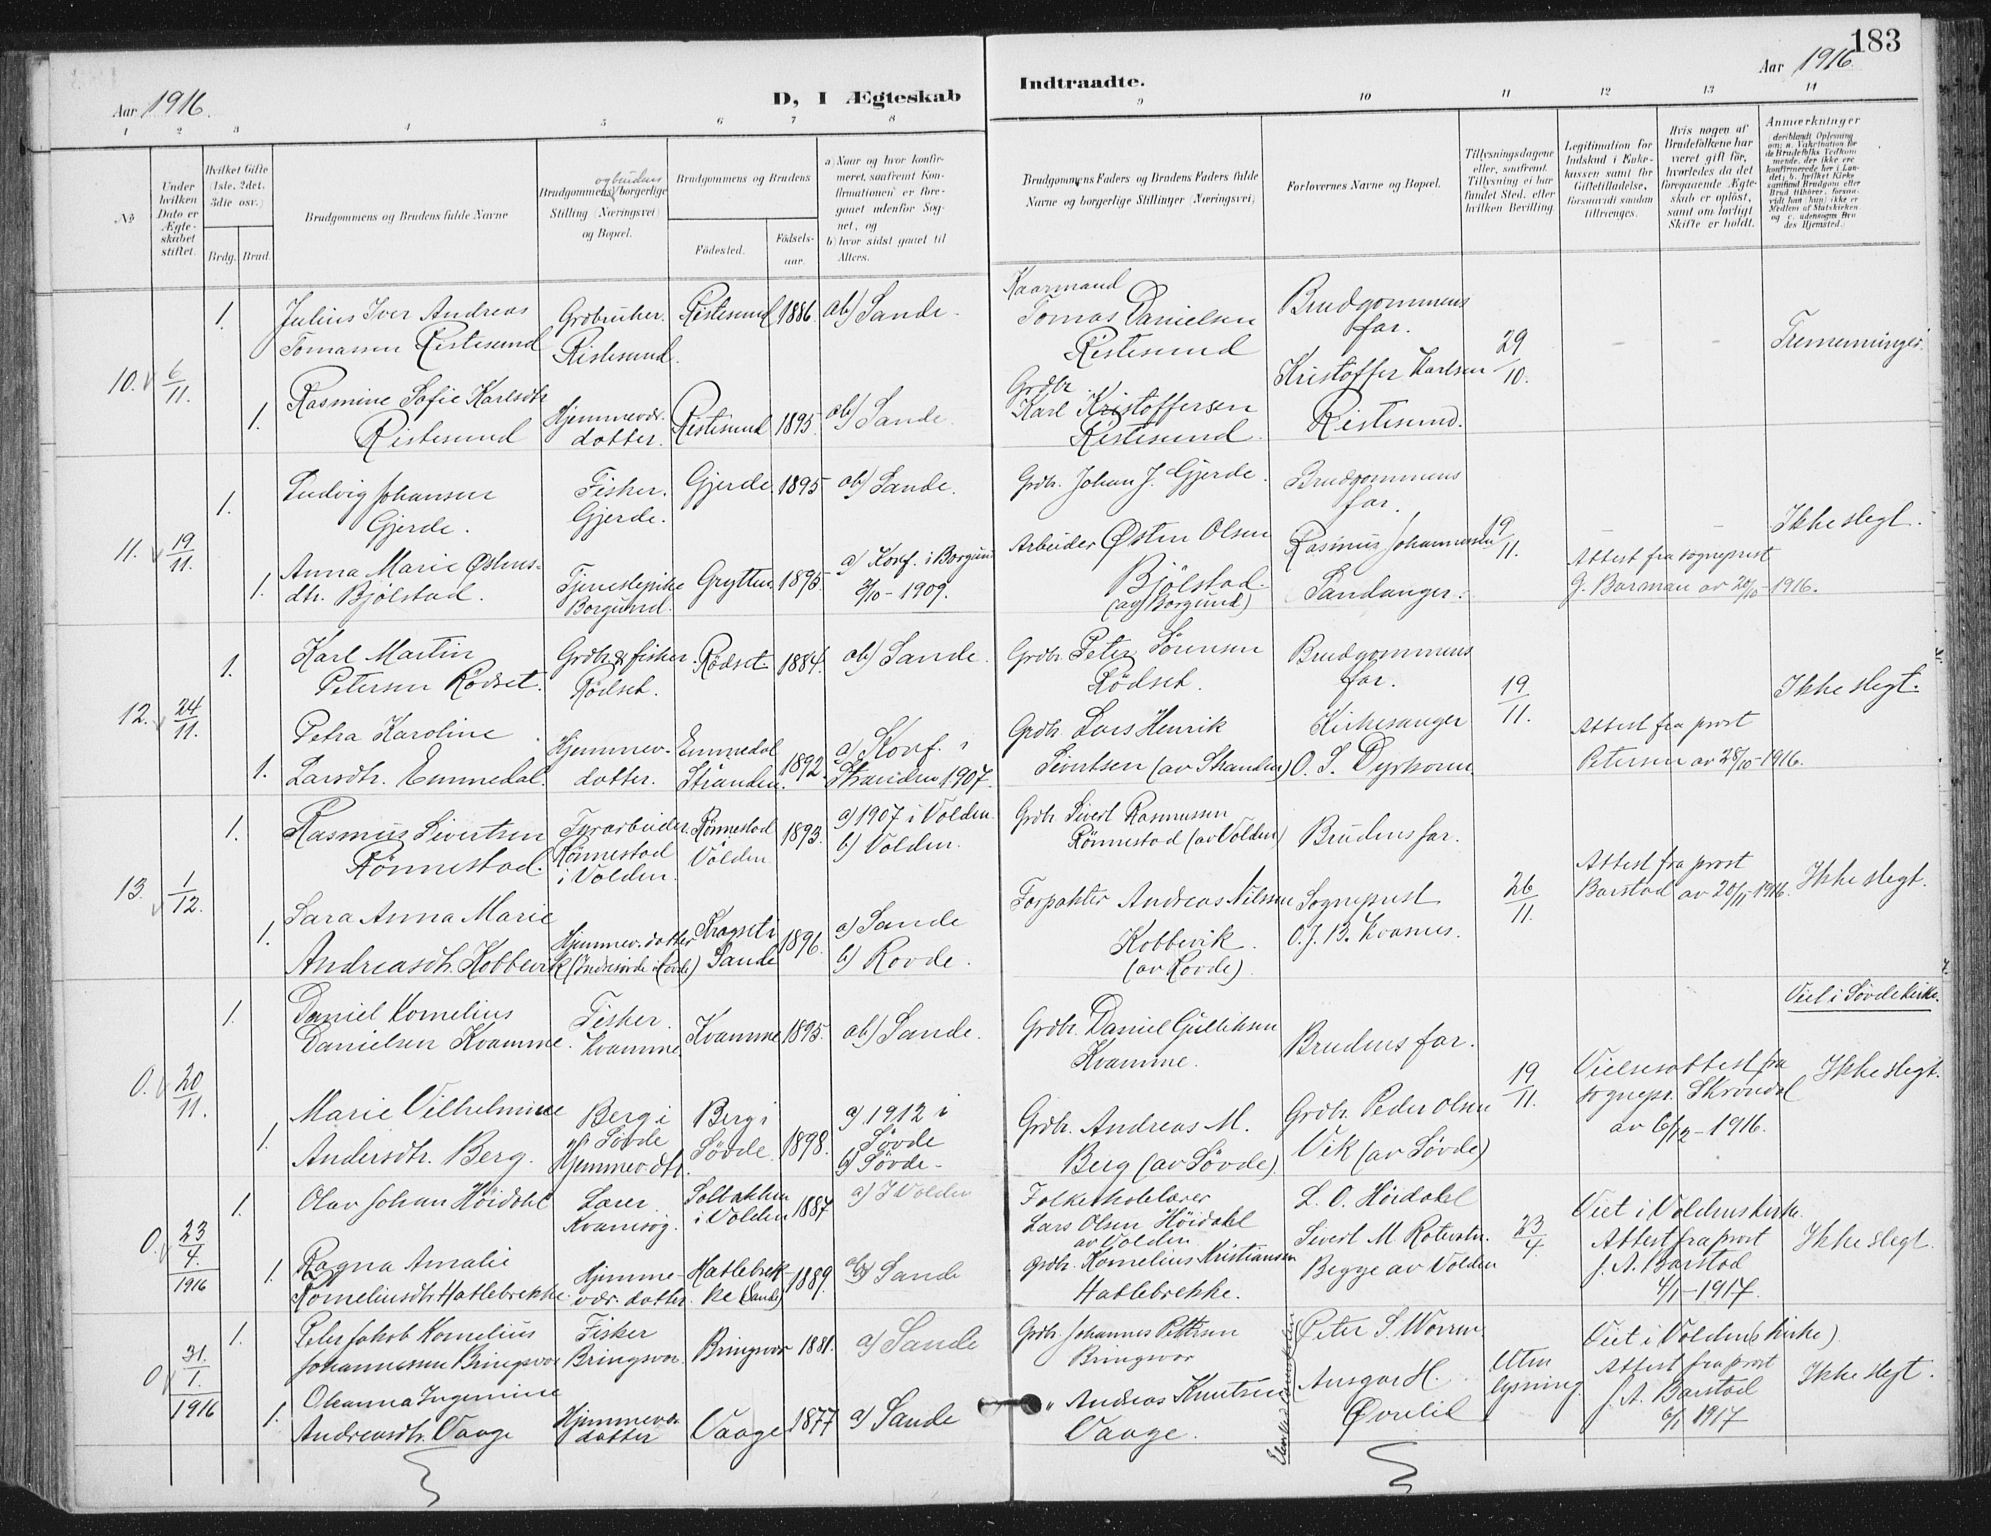 183
Aar 1916.
D, I Ægteskab
Indtraadte.
Aar 1916.
1 2 3 4 5 6 7 8 9 10 11 12 13 14
No
Under hvilken Dato er Ægteskabet stiftet.
Hvilket Gifte (1ste, 2det, 3die osv.)
Brdg. Brud.
Brudgommens og Brudens fulde Navne
og brudens
Brudgommens borgerlige Stilling (Næringsvei) og Bopæl.
Brudgommens og Brudens
Fødested.
Fødselsaar.
a) Naar og hvor konfirmeret, saafremt Konfirmationen er foregaaet udenfor Sognet, og
b) hvor sidst gaaet til Alters.
Brudgommens Faders og Brudens Faders fulde Navne og borgerlige Stillinger (Næringsvei)
Forlovernes Navne og Bopæl.
Tillysningsdagene eller, saafremt Tillysning ei har fundet Sted, efter hvilken Bevilling
Legitimation for Indskud i Enkekassen samt for Giftetilladelse, forsaavidt saadan tiltrænges.
Hvis nogen af Brudefolkene har været gift før, hvorledes da det foregaaende Ægteskab er opløst, samt om lovligt Skifte er holdt.
Anmærkninger
10.
6/11.
1.
Julius Iver Andreas
Tomassen Ristesund
Grdbruker.
Ristesund.
Ristesund
1886.
ab) Sande.
Kaarmand
Tomas Danielsen
Ristesund
Brudgommens
far.
29/10.
Tremenninger.
1.
Rasmine Sofie Karlsdtr
Ristesund
Hjemmevær.
dotter.
Ristesund
1895.
ab) Sande.
Grdbr.
Karl Kristoffersen
Ristesund.
Kristoffer Karlsen
Ristesund.
11.
19/11.
1.
Ludvig Johansen
Gjerde.
Fisker.
Gjerde.
Gjerde.
1895
ab) Sande.
Grdbr. Johan J. Gjerde.
Brudgommens
far.
19/11.
Ikke slegt.
1.
Anna Marie Østens-
dtr. Bjølstad.
Tjenestepike
Borgund.
Grytten
1895
a) Konf. i Borgund
3/10 - 1909.
Arbeider Østen Olsen
Bjølstad.
(av Borgund)
Rasmus Johannessen
Sandanger.
Attest fra sogneprest
G. Barman av 20/10 - 1916.
12.
24/11.
1.
Karl Martin
Petersen Rødset.
Grdbr & fisker.
Rødset.
Rødset.
1884.
ab) Sande.
Grdbr. Peter Sørensen
Rødset.
Brudgommens
far.
19/11.
Ikke slegt.
1.
Petra Karoline
Larsdtr. Emmedal.
Hjemmev-
dotter.
Emmedal
Stranden.
1892.
a) Konf. i
Stranden 1907.
Grdbr. Lars Henrik
Sivertsen (av Stranden)
Kirkesanger
O. S. Dyrhovn.
Attest fra prost
Petersen av 28/10 - 1916.
13.
1/12.
1.
Rasmus Sivertsen
Rønnestad.
Rønnestad
i Volden.
Rønnestad
Volden
1893.
a) 1907 i Volden.
b) Volden.
Grdbr. Sivert Rasmussen
Rønnestad (av Volden)
Brudens far.
26/11.
Attest fra prost
Barstad av 20/11 1916.
Ikke slegt.
1.
Sara Anna Marie
Andreasdtr. Kobbevik
Hjemmev. dotter
Kragset i
Sande
1896.
a) Sande
b) Rovde.
Forpakter Andreas Nilssen
Kobbevik.
(av Rovde).
Sogneprest
O. J. B. Kvasnes.
0.
20/11.
1.
Daniel Kornelius
Danielsen Kvamme.
Fisker.
Kvamme.
Kvamme
1895.
ab) Sande.
Grdbr. Daniel Gulliksen
Kvamme.
Brudens far.
19/11.
Vielsesattest fra
sognepr. Skrondal
av 6/12 - 1916.
Viet i Søvde kirke.
Ikke slegt.
1.
Marie Vilhelmine
Andersdtr. Berg.
Berg i
Søvde
Hjemmev. dtr.
Berg i
Søvde.
1898.
a) 1912 i
Søvde
b) Søvde.
Grdbr. Andreas M.
Berg (av Søvde)
Grdbr. Peder Olsen
Vik (av Søvde)
0.
23/4.
1916
1.
Olav Johan Høidahl
Lærer.
Kvamsøy.
Solbakken
i Volden
1887
a) I Volden
Folkeskolelærer
Lars Olsen Høidahl
av Volden
L. O. Høidahl
23/4
Viet i Voldens kirke.
Attest fra prost
J. A. Barstad
4/1 - 1917.
Ikke slegt.
1.
Ragna Amalie
Korneliusdtr Hatlebrekke
Hjemme-
vær. dotter.
Hatlebrek-
ke (Sande)
1889.
ab) Sande
Grdbr. Kornelius Kristiansen
Hatlebrekke.
Sivert M Rotevatn.
Begge av Volden
0
31./1.
1916
1.
Peter Jakob Kornelius
Johannessen Bringsvor
Fisker
Bringsvor.
Bringsvor
1881.
a) Sande
Grdbr. Johannes Petersen
Bringsvor
Peter S. Worren.
Uten
lysning.
Viet i Volden (kirke).
Attest fra prost
J. A. Barstad
6/1 1917
Ikke slegt.
1.
Oleanna Ingemine
Andreasdtr. Vaage
Hjemmevær
dotter
Vaage
1877
a) Sande
" Andreas Knutsen
Vaage.
Ansgar H.
Øvrelid